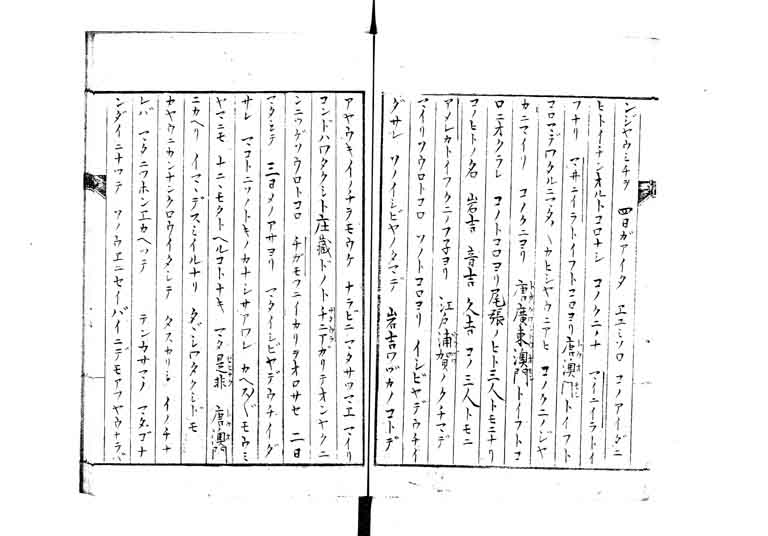 ンジヤウミチヲ 四日ガアイタ ユエミソロ コノアイダニ
ヒトイチンオルトコロナシ コノクニノナ マイニイラトイ
フナリ マ井ニイラトイフトコロヨリ唐澳門トイフト
コロマデワタルニマタ カヒシヤウニアヒ コノクニノジヤ
カニマイリ コノクニヨリ 唐廣東澳門トイフトコ
ロニオクラレ コノトコロヨリ尾張ノヒト三人トモニナリ
コノヒトノ名 岩吉 音吉 久吉 コノ三人トモニ
アメレカトイフクニノフ子ヨリ 江戸浦賀ノクチマデ
マイリソウロウトコロ ソノトコロヨリ イシビヤデウチイ
ダサレ ソノイシビヤノタマデ 岩吉ワヅカノコトデ
アヤウキイノチヲモウケ ナラビニマタサツマエマイリ
コンドハワタクシト庄藏ドノトチニアガリテオンヤクニ
ンニツゲソウロトコロ チガモフニイカリヲオロサセ 二日
マタシテ 三日メノアサヨリ マタイシビヤデウチイダ
サレ マコトニソノトキノカナシサアワレ カヘス〲モウミ
ヤマニモ ナニニモタトヘルコトナキ マタ是非 唐澳門
ニカヘリ イマニデスミイルナリ タダシワタクシドモ
カヤウニカンナンクロウイタシテ タスカリシ イノチナ
レバ マタニツホンエカヘッテ テンウサマノ マタゴナ
ンダイニナッテ ソノウエニセイバイニデモアフヤウナラバ